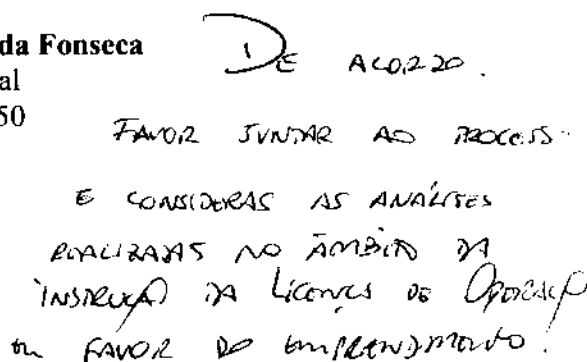 da Fonseca
al
50
DE ACORDO.
FAVOR JUNTAR AO PROCESSO
E CONSIDERAR AS ANÁLISES
REALIZADAS NO ÂMBITO DA
INSTRUÇÃO DA LICENÇA DE OPERAÇÃO
EM FAVOR DO EMPREENDIMENTO.